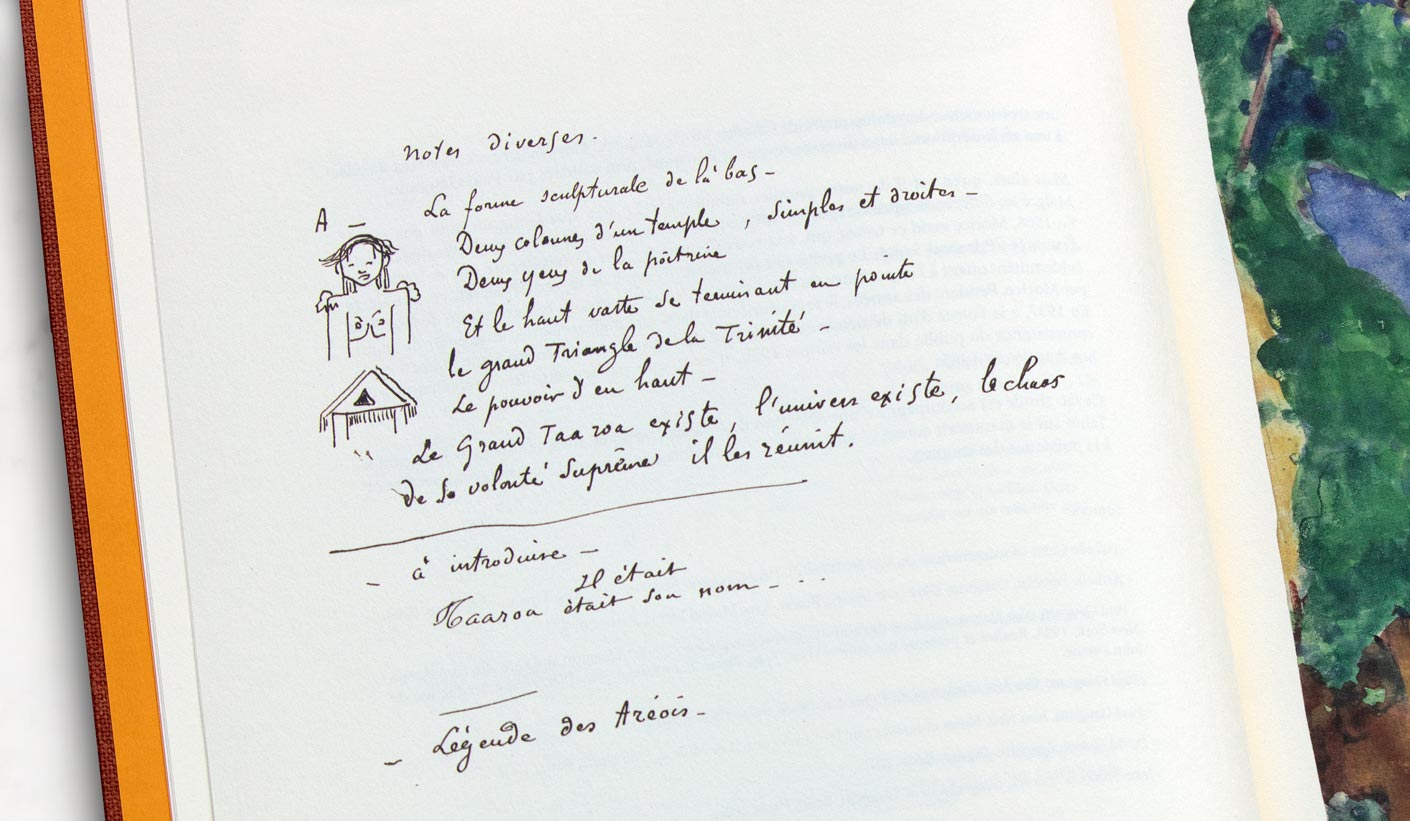 notes diverses.
A — La forme sculpturale de là bas —
Deux colonnes d'un temple, simples et droites —
Deux yeux de la poitrine
Et le haut vaste se terminant en pointe
le grand Triangle de la Trinité —
Le pouvoir d'en haut —
Le Grand Taaroa existe, l'univers existe, le chaos
de sa volonté Suprême il les réunit.
— à introduire —
Il était
Taaroa était son nom - . . .
— Légende des Aréois —